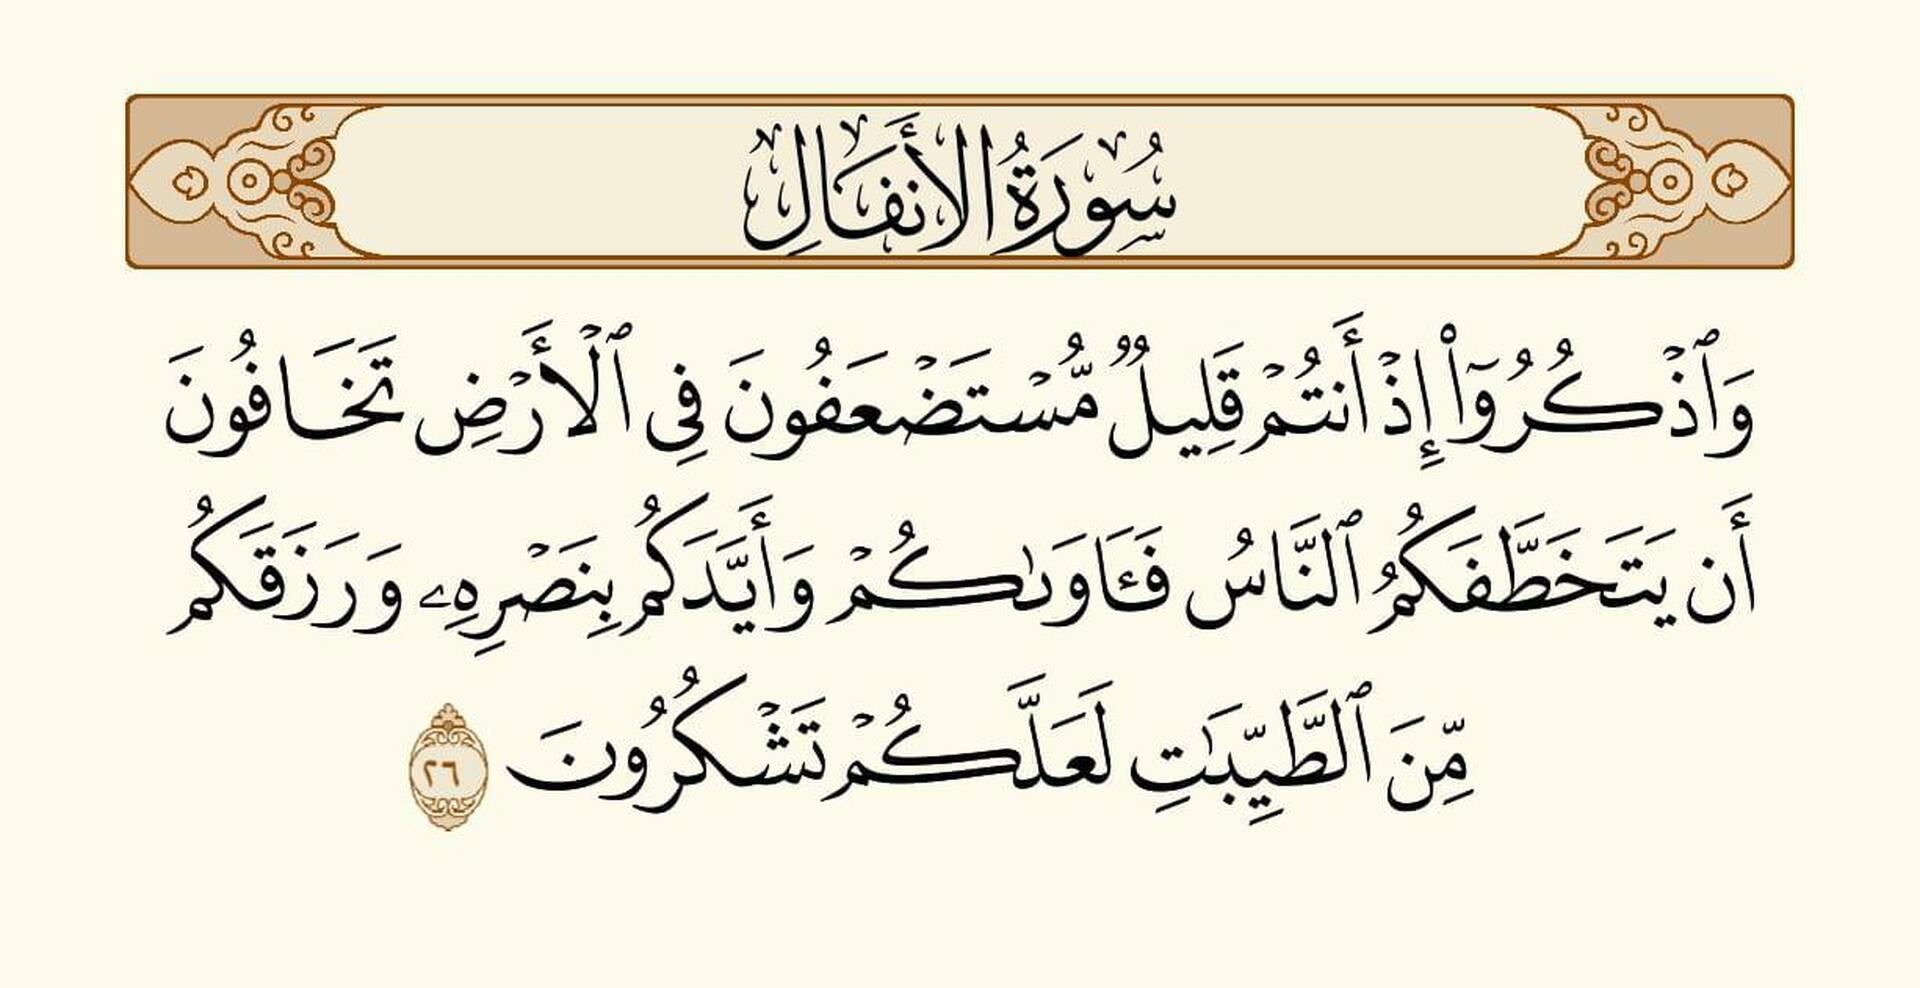 سُورَةُ الأَنفَالِ
وَٱذۡكُرُوٓاْ إِذۡ أَنتُمۡ قَلِيلٞ مُّسۡتَضۡعَفُونَ فِي ٱلۡأَرۡضِ تَخَافُونَ
أَن يَتَخَطَّفَكُمُ ٱلنَّاسُ فَـَٔاوَىٰكُمۡ وَأَيَّدَكُم بِنَصۡرِهِۦ وَرَزَقَكُم
مِّنَ ٱلطَّيِّبَٰتِ لَعَلَّكُمۡ تَشۡكُرُونَ ٢٦